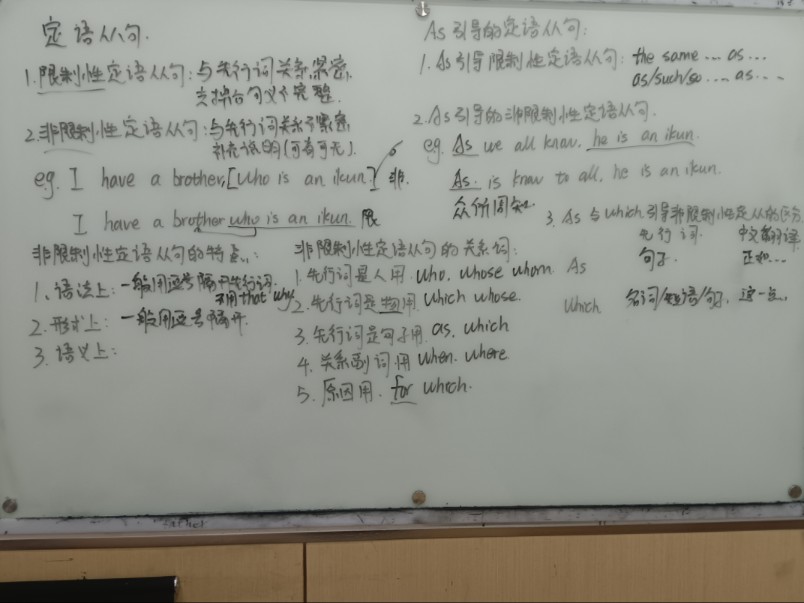 定语从句.
1.限制性定语从句:与先行词关系紧密,
去掉后句义不完整.
2.非限制性定语从句:与先行词关系不紧密,
补充说明(可有可无).
e.g. I have a brother,[who is an ikun.] 非.
I have a brother who is an ikun. 限
非限制性定语从句的特点:
1、语法上:一般用逗号隔开先行词.
不用that why
2.形式上:一般用逗号隔开.
3.语义上:
非限制性定语从句的关系词:
1.先行词是人用. who. whose whom.
2.先行词是物用 which whose.
3.先行词是句子用. as. which
4.关系副词用 when. where
5.原因用. for which.
As 引导的定语从句:
1.As引导限制性定语从句: the same ... as ...
as/such/so .... as ....
2.As引导的非限制性定语从句.
eg. As we all know, he is an ikun.
As. is know to all, he is an ikun.
众所周知
3. As 与 which 引导非限制性定从的区分
先行词. 中文翻译
As 句子. 正如...
Which 名词/短语/句子, 这一点,